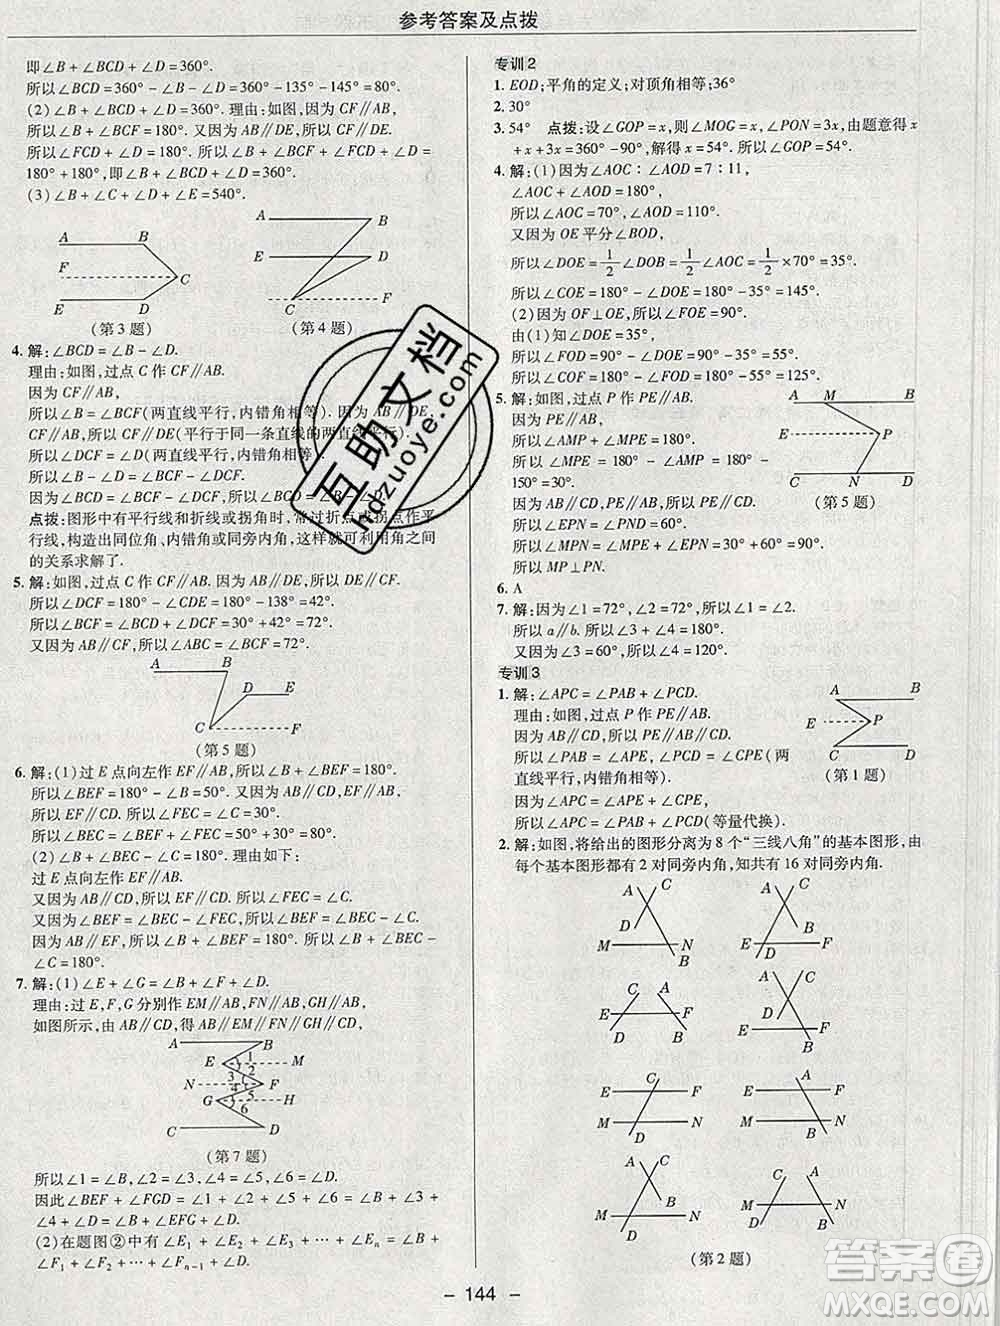 参考答案及点拨
即∠B＋∠BCD＋∠D＝360°.
所以∠BCD＝360°－∠B－∠D＝360°－135°－145°＝80°.
(2)∠B＋∠BCD＋∠D＝360°. 理由:如图,因为 CF∥AB,
所以∠B＋∠BCF＝180°. 又因为 AB∥DE,所以 CF∥DE.
所以∠FCD＋∠D＝180°. 所以∠B＋∠BCF＋∠FCD＋∠D＝
180°＋180°,即∠B＋∠BCD＋∠D＝360°.
(3)∠B＋∠C＋∠D＋∠E＝540°.
A B
F C
E D
(第 3 题)
A B
E D
C F
(第 4 题)
4. 解:∠BCD＝∠B－∠D.
理由:如图,过点 C 作 CF∥AB.
因为 CF∥AB,
所以∠B＝∠BCF(两直线平行,内错角相等). 因为 AB∥DE,
CF∥AB,所以 CF∥DE(平行于同一条直线的两直线平行).
所以∠DCF＝∠D(两直线平行,内错角相等).
所以∠B－∠D＝∠BCF－∠DCF.
因为∠BCD＝∠BCF－∠DCF,所以∠BCD＝∠B－∠D.
点拨:图形中有平行线和折线或拐角时,常过折点或拐点作平
行线,构造出同位角、内错角或同旁内角,这样就可利用角之间
的关系求解了.
5. 解:如图,过点 C 作 CF∥AB. 因为 AB∥DE,所以 DE∥CF.
所以∠DCF＝180°－∠CDE＝180°－138°＝42°.
所以∠BCF＝∠BCD＋∠DCF＝30°＋42°＝72°.
又因为 AB∥CF,所以∠ABC＝∠BCF＝72°.
A B
D E
C F
(第 5 题)
6. 解:(1)过 E 点向左作 EF∥AB,所以∠B＋∠BEF＝180°.
所以∠BEF＝180°－∠B＝50°. 又因为 AB∥CD,EF∥AB,
所以 EF∥CD. 所以∠FEC＝∠C＝30°.
所以∠BEC＝∠BEF＋∠FEC＝50°＋30°＝80°.
(2)∠B＋∠BEC－∠C＝180°. 理由如下:
过 E 点向左作 EF∥AB,
又因为 AB∥CD,所以 EF∥CD,所以∠FEC＝∠C.
又因为∠BEF＝∠BEC－∠FEC,所以∠BEF＝∠BEC－∠C.
因为 AB∥EF,所以∠B＋∠BEF＝180°. 所以∠B＋∠BEC
－∠C＝180°.
7. 解:(1)∠E＋∠G＝∠B＋∠EFG＋∠D.
理由:过 E,F,G 分别作 EM∥AB,FN∥AB,GH∥AB,
如图所示,由 AB∥CD,得 AB∥EM∥FN∥GH∥CD,
A B
E 1 2 M
N 3 4 F
G 5 6 H
C D
(第 7 题)
所以∠1＝∠B,∠2＝∠3,∠4＝∠5,∠6＝∠D.
因此∠BEF＋∠FGD＝∠1＋∠2＋∠5＋∠6＝∠B＋∠3＋
∠4＋∠D＝∠B＋∠EFG＋∠D.
(2)在题图②中有∠E₁＋∠E₂＋∠E₃＋…＋∠Eₙ＝∠B＋
∠F₁＋∠F₂＋…＋∠Fₙ₋₁＋∠D.
专训2
1. EOD;平角的定义;对顶角相等;36°
2. 30°
3. 54° 点拨:设∠GOP＝x,则∠MOG＝x,∠PON＝3x,由题意得 x
＋x＋3x＝360°－90°,解得 x＝54°. 所以∠GOP＝54°.
4. 解:(1)因为∠AOC∶∠AOD＝7∶11,
∠AOC＋∠AOD＝180°,
所以∠AOC＝70°,∠AOD＝110°.
又因为 OE 平分∠BOD,
所以∠DOE＝1/2∠DOB＝1/2∠AOC＝1/2×70°＝35°.
所以∠COE＝180°－∠DOE＝180°－35°＝145°.
(2)因为 OF⊥OE,所以∠FOE＝90°.
由(1)知∠DOE＝35°,
所以∠FOD＝90°－∠DOE＝90°－35°＝55°.
所以∠COF＝180°－∠FOD＝180°－55°＝125°.
5. 解:如图,过点 P 作 PE∥AB.
因为 PE∥AB,
所以∠AMP＋∠MPE＝180°.
所以∠MPE＝180°－∠AMP＝180°－
150°＝30°.
因为 AB∥CD,PE∥AB,所以 PE∥CD.
所以∠EPN＝∠PND＝60°.
所以∠MPN＝∠MPE＋∠EPN＝30°＋60°＝90°.
所以 MP⊥PN.
A M B
E P
C N D
(第 5 题)
6. A
7. 解:因为∠1＝72°,∠2＝72°,所以∠1＝∠2.
所以 a∥b. 所以∠3＋∠4＝180°.
又因为∠3＝60°,所以∠4＝120°.
专训3
1. 解:∠APC＝∠PAB＋∠PCD.
理由:如图,过点 P 作 PE∥AB.
因为 AB∥CD,所以 PE∥CD.
所以∠PAB＝∠APE,∠PCD＝∠CPE(两
直线平行,内错角相等).
因为∠APC＝∠APE＋∠CPE,
所以∠APC＝∠PAB＋∠PCD(等量代换).
A B
E P
C D
(第 1 题)
2. 解:如图,将给出的图形分离为 8 个“三线八角”的基本图形,由
每个基本图形都有 2 对同旁内角,知共有 16 对同旁内角.
A C
D
M N
B
A C
B
E F
D
C A
E F
D B
A C
M N
D B
C
E F
M N
D
A
E F
M N
B
A C
B
M N
D
A C
M N
D B
(第 2 题)
－ 144 －
互助文档
hdzuoye.com
答案圈
MXQE.COM